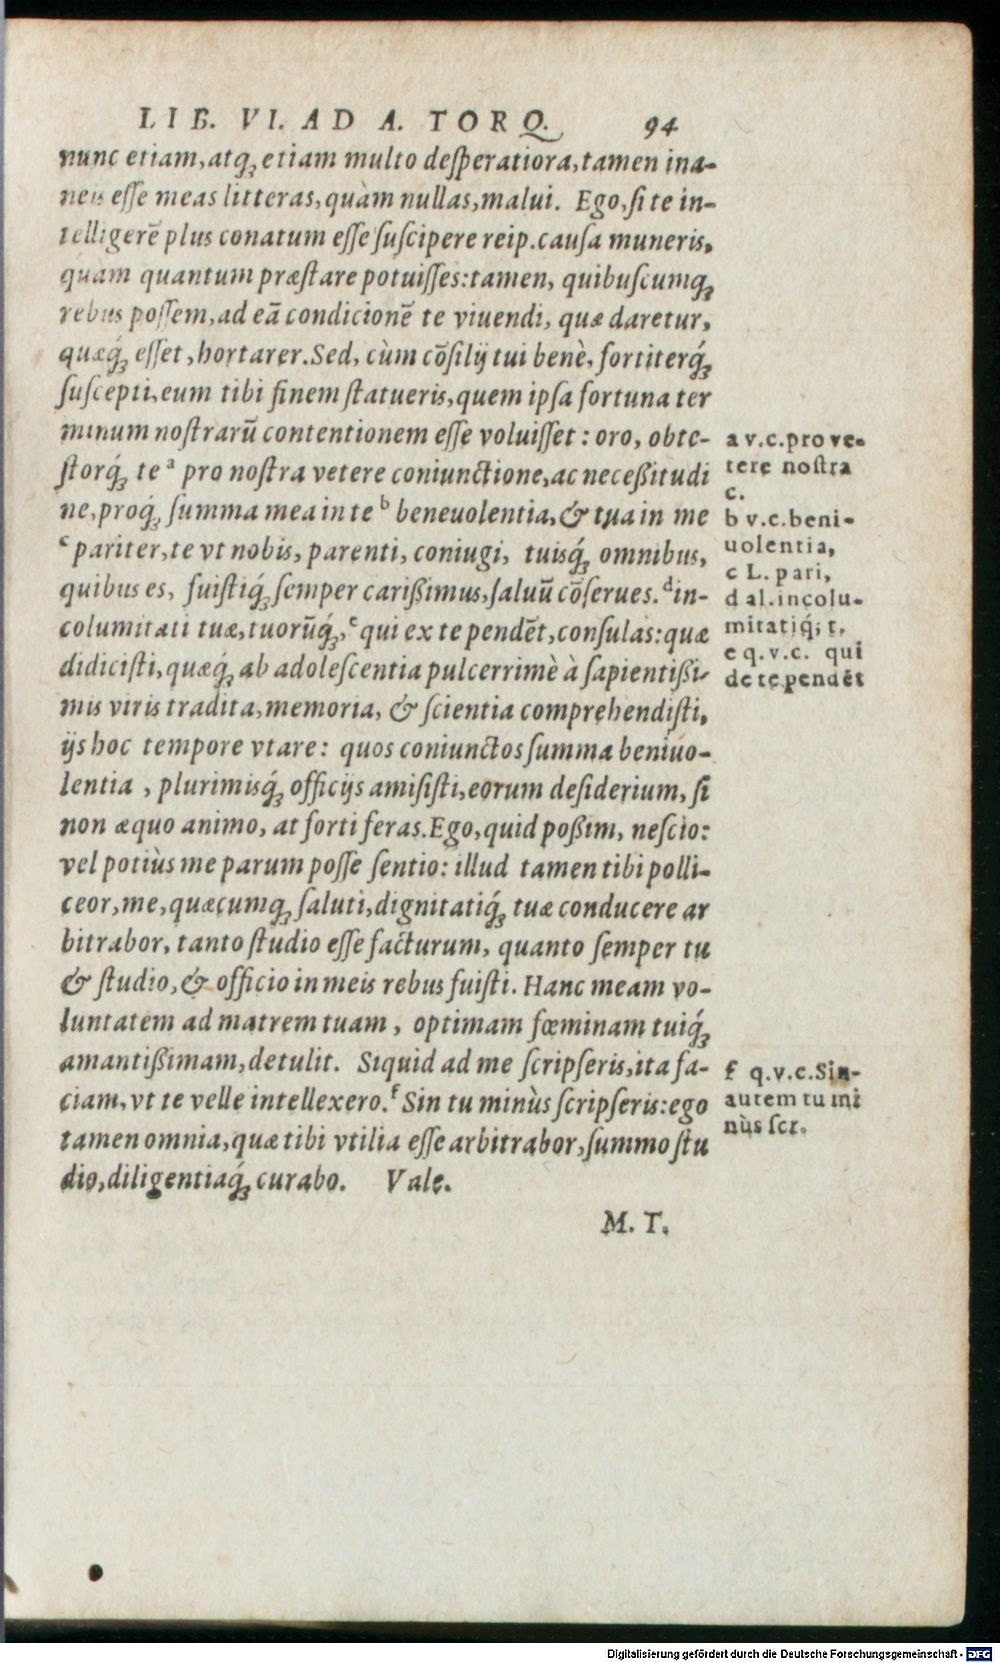 LIB. VI. AD A. TORQ. 94
nunc etiam, atq; etiam multo desperatiora, tamen ina-
neis esse meas litteras, quàm nullas, malui. Ego, si te in-
telligerẽ plus conatum esse suscipere reip. causa muneris,
quam quantum præstare potuisses: tamen, quibuscumq;
rebus possem, ad eã condicionẽ te viuendi, quæ daretur,
quæq́; esset, hortarer. Sed, cùm cõsilij tui benè, fortiterq́;
suscepti, eum tibi finem statueris, quem ipsa fortuna ter
minum nostrarũ contentionem esse voluisset: oro, obte-
storq́; te ᵃ pro nostra vetere coniunctione, ac neceßitudi
ne, proq́; summa mea in te ᵇ beneuolentia, & tua in me
ᶜ pariter, te vt nobis, parenti, coniugi, tuisq́; omnibus,
quibus es, fuistiq́; semper carißimus, saluũ cõserues. ᵈ in-
columitati tuæ, tuorũq́;, ᵉ qui ex te pendẽt, consulas: quæ
didicisti, quæq́; ab adolescentia pulcerrimè à sapientißi-
mis viris tradita, memoria, & scientia comprehendisti,
ijs hoc tempore vtare: quos coniunctos summa beniuo-
lentia, plurimisq́; officijs amisisti, eorum desiderium, si
non æquo animo, at forti feras. Ego, quid poßim, nescio:
vel potiùs me parum posse sentio: illud tamen tibi polli-
ceor, me, quæcumq; saluti, dignitatiq́; tuæ conducere ar
bitrabor, tanto studio esse facturum, quanto semper tu
& studio, & officio in meis rebus fuisti. Hanc meam vo-
luntatem ad matrem tuam, optimam fœminam tuiq́;
amantißimam, detulit. Siquid ad me scripseris, ita fa-
ciam, vt te velle intellexero. ᶠ Sin tu minùs scripseris: ego
tamen omnia, quæ tibi vtilia esse arbitrabor, summo stu
dio, diligentiaq́; curabo. Vale.
M. T.
a v.c. pro ve-
tere nostra
c.
b v.c. beni-
uolentia,
c L. pari,
d al. incolu-
mitatiq́; t,
e q.v.c. qui
de te pendẽt
f q.v.c. Sin-
autem tu mi
nùs scr.
Digitalisierung gefördert durch die Deutsche Forschungsgemeinschaft - DFG